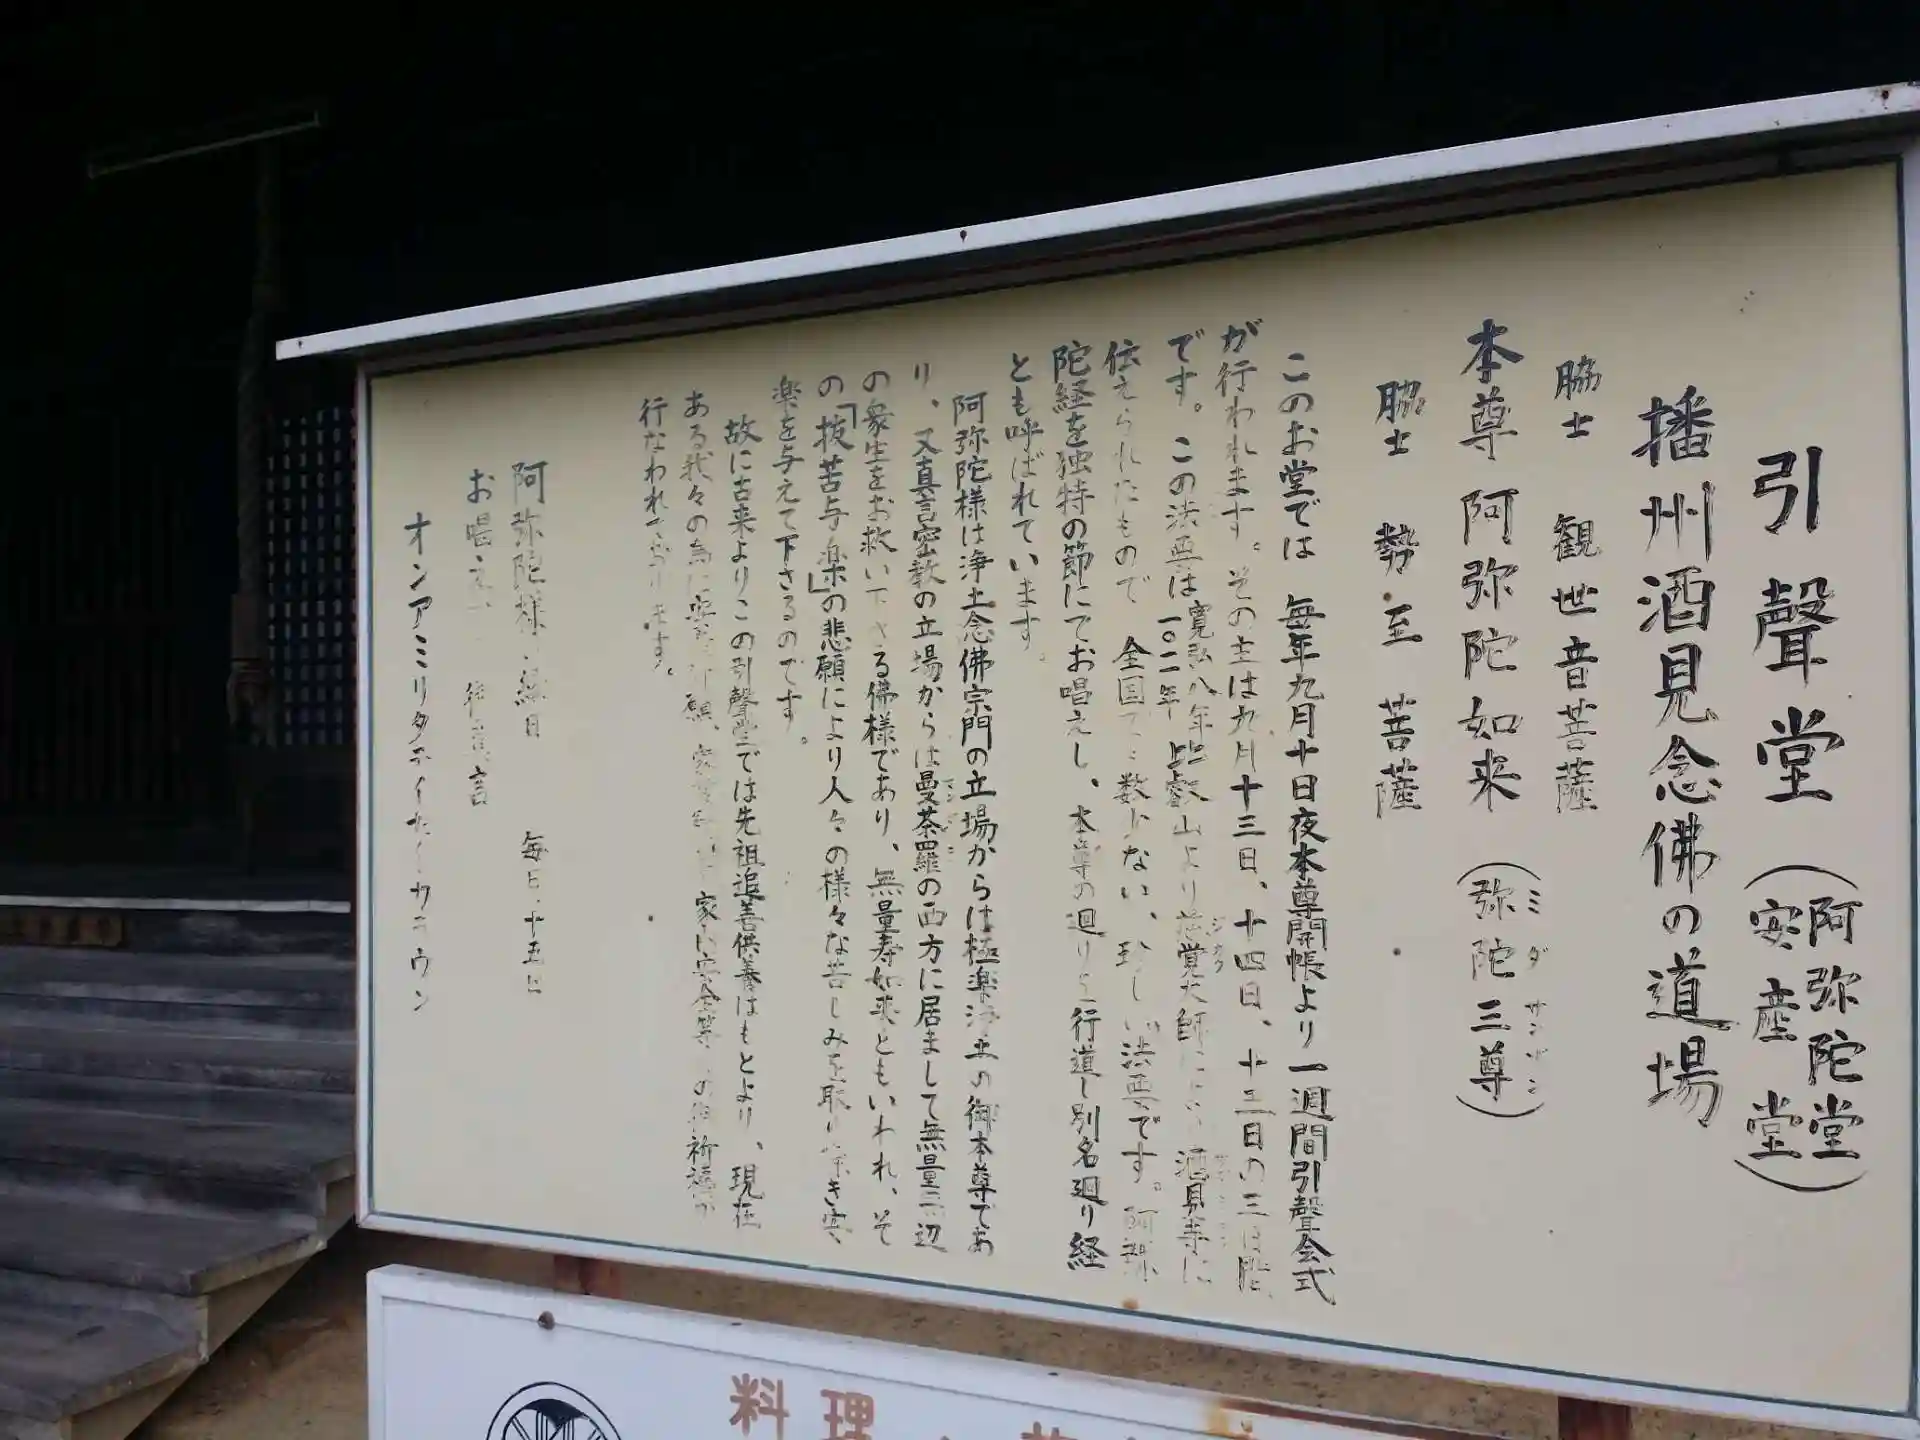 引聲堂（阿弥陀堂 安産堂）
播州酒見念佛の道場
脇士 観世音菩薩
本尊 阿弥陀如来（弥陀三尊）
ミダサンゾン
脇士 勢至菩薩
このお堂では 毎年九月十日夜本尊開帳より一週間引聲会式
が行われます。その主は九月十三日、十四日、十三日の三日
です。この法要は 寛弘八年 一〇二一年 比叡山より 覚大師に 酒見寺に
伝えられたもので 全国でも数少ない、珍しい法要です。阿弥
陀経を独特の節にてお唱えし、本尊の廻りを行道し別名廻り経
とも呼ばれています。
阿弥陀様は浄土念佛宗門の立場からは極楽浄土の御本尊であ
り、又真言密教の立場からは曼荼羅の西方に居まして無量 辺
の衆生をお救い下さる佛様であり、無量寿如来ともいわれ、そ
の「抜苦与楽」の悲願により人々の様々な苦しみを取り除き安
楽を与えて下さるのです。
故に古来よりこの引聲堂では先祖追善供養はもとより、現在
ある我々の為に安 願、家 家 安全等 の御祈禱が
行なわれております。
阿弥陀様 縁日 毎日、十五日
お唱え 御真言
オンアミリタテイ カラウン
料理